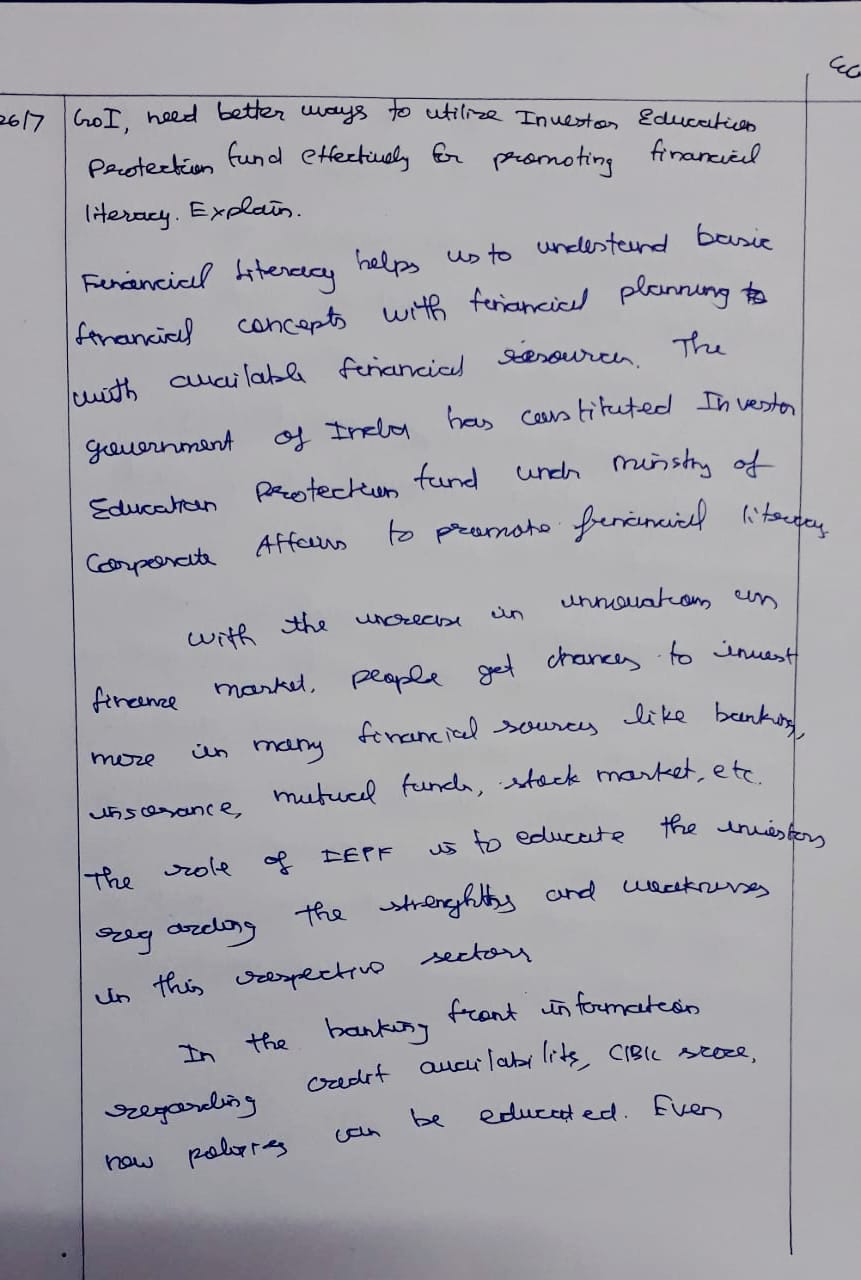 26/7 GoI, need better ways to utilize Investor Education
Protection fund effectively for promoting financial
literacy. Explain.
Financial literacy helps us to understand basic
financial concepts with financial planning
with available financial resources. The
government of India has constituted Investor
Education Protection fund under ministry of
Corporate Affairs to promote financial literacy
With the increase in innovations in
finance market, people get chances to invest
more in many financial sources like banking,
insurance, mutual funds, stock market, etc.
The role of IEPF is to educate the investors
regarding the strenghths and weaknesses
in this respective sectors
In the banking front information
regarding credit availability, CIBIL score,
new policies can be educated. Even